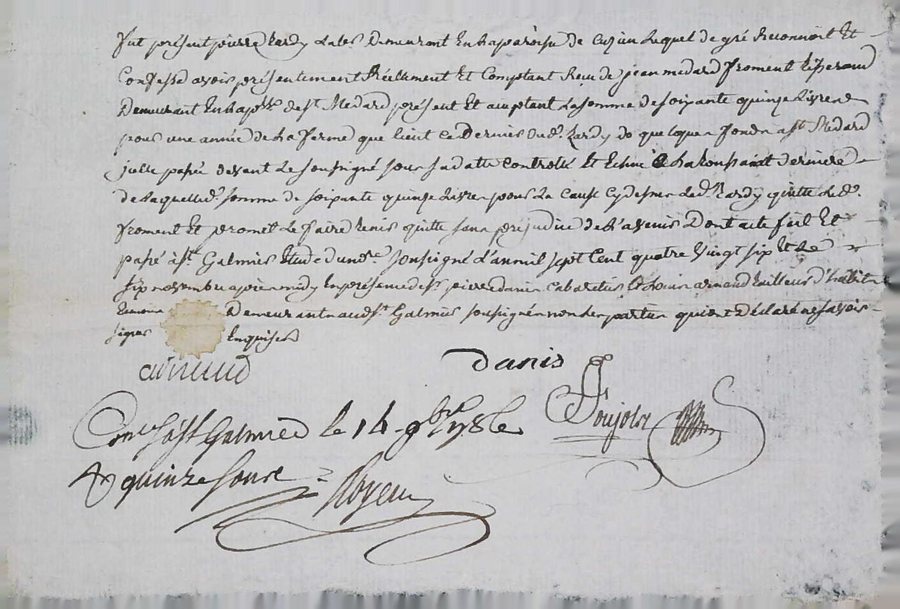 fut présent pierre Lardy Demeurant En la paroisse de Cuzieu Lequel de gré Reconnoit Et
Confesse avoir présentement Réellement Et Comptant Reçu de jean medard froment tisserand
Demeurant En la ps.se de st. Medard présent Et acceptant La somme de soixante quinze Livres
pour une année de La ferme que tient Ce Dernier dud. Lardy de quelques fonds a st Medard
passé devant Le soussigné sous sa datte Controllé Et Echue a La toussaint derniere
de Laquelle d. somme de soixante quinze Livres pour La Cause Cy dessus Led. Lardy quitte Led.
froment Et promet Le faire tenir quitte sans préjudice de L'avenir Dont acte fait Et
passé a st. Galmier Etude du no.re soussigné L'an mil sept Cent quatre Vingt six Et Le
six novembre après midy En présence de sr. pierre danis Cabaretier Et Louis arnaud tailleur d'habits
temoins Demeurant aud. st. Galmier soussignés non Les parties qui ont Déclaré ne savoir
signer Enquises
arnaud danis
Con.lé à st Galmier le 14 9bre 1786
quinze sous